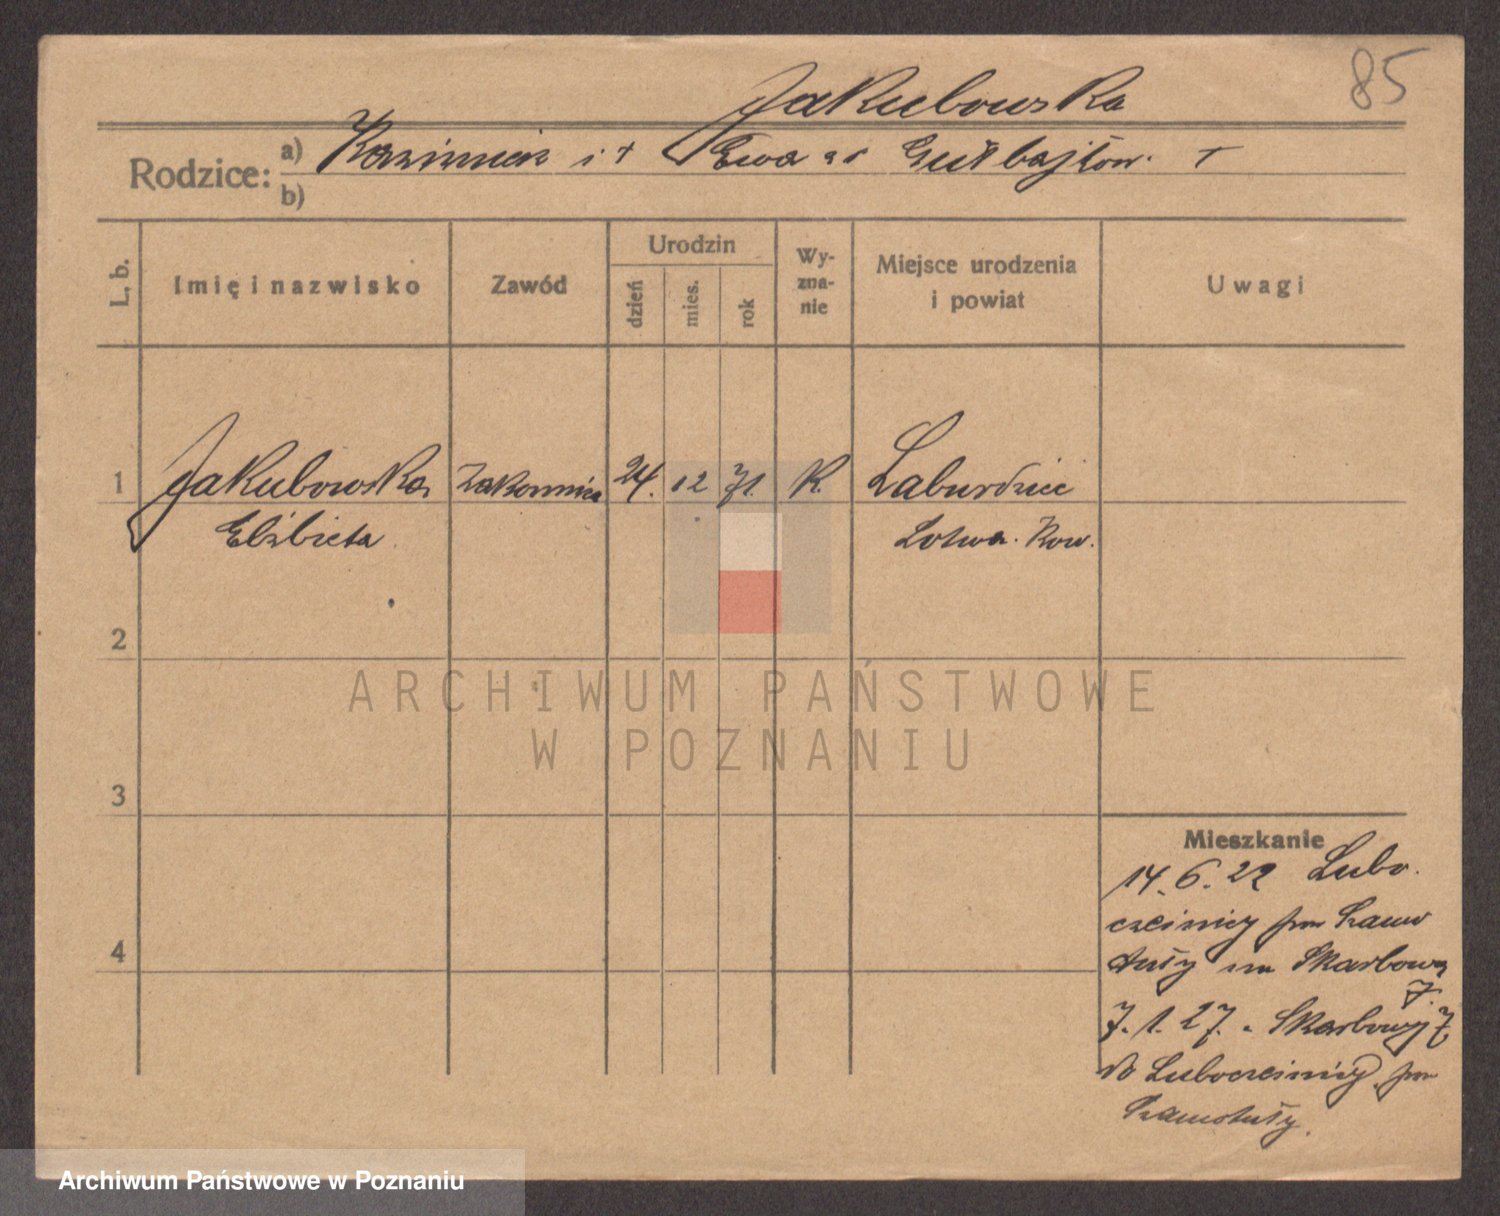 85
Jakubowska
Rodzice: a) Kazimierz i † Ewa
b)
L. b.
Imię i nazwisko
Zawód
Urodzin
dzień
mies.
rok
Wy-
zna-
nie
Miejsce urodzenia
i powiat
Uwagi
1 Jakubowska Zakonnica 24. 12 71. K.
Elżbieta Łotwa. Kow.
2
3
4
Mieszkanie
14. 6. 22 Lubo.
czeinicy pow Szamo
tuły na Skarbowa
7.
7. 1. 27. Skarbowej 7
do Luboczeinicy pow
Szamotuły.
ARCHIWUM PAŃSTWOWE
W POZNANIU
Archiwum Państwowe w Poznaniu